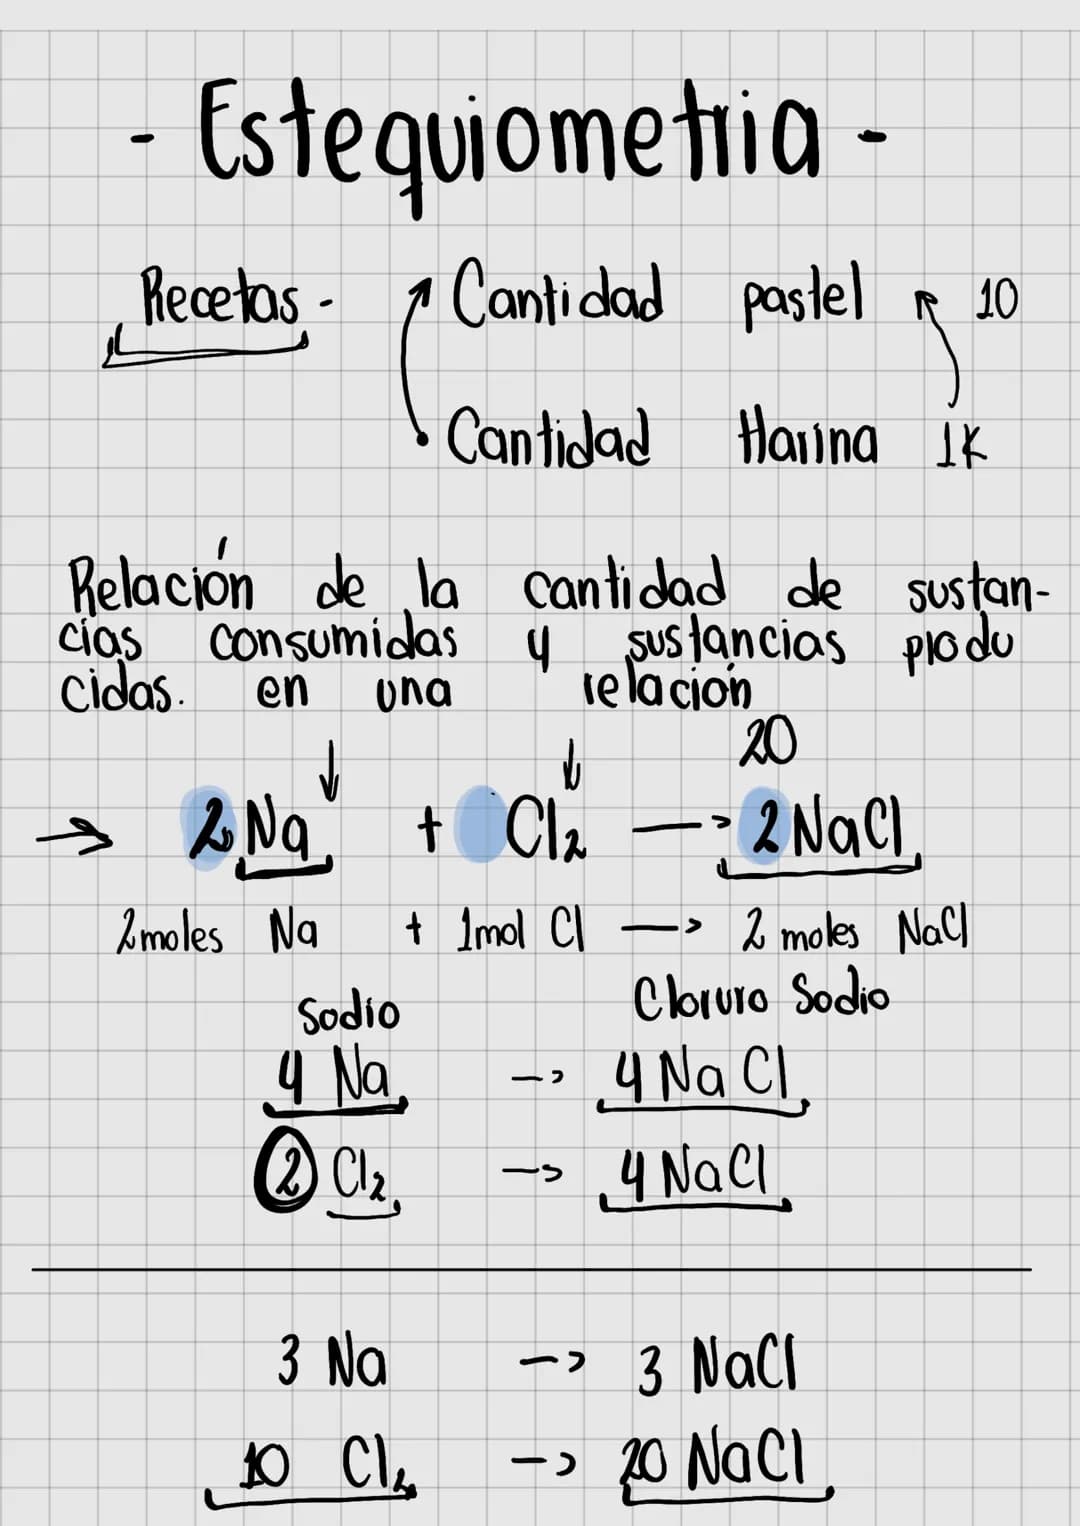 - Estequiometria -
Recetas - Cantidad pastel 10
Cantidad Harina 1K
Relación de la cantidad de sustan-
cias consumidas y sustancias produ
cidas. en una relación
20
2 Na + Cl2 -> 2 NaCl
2 moles Na + 1mol Cl -> 2 moles NaCl
Sodio Cloruro Sodio
4 Na -> 4 NaCl
2 Cl2 -> 4 NaCl
3 Na -> 3 NaCl
10 Cl2 -> 20 NaCl